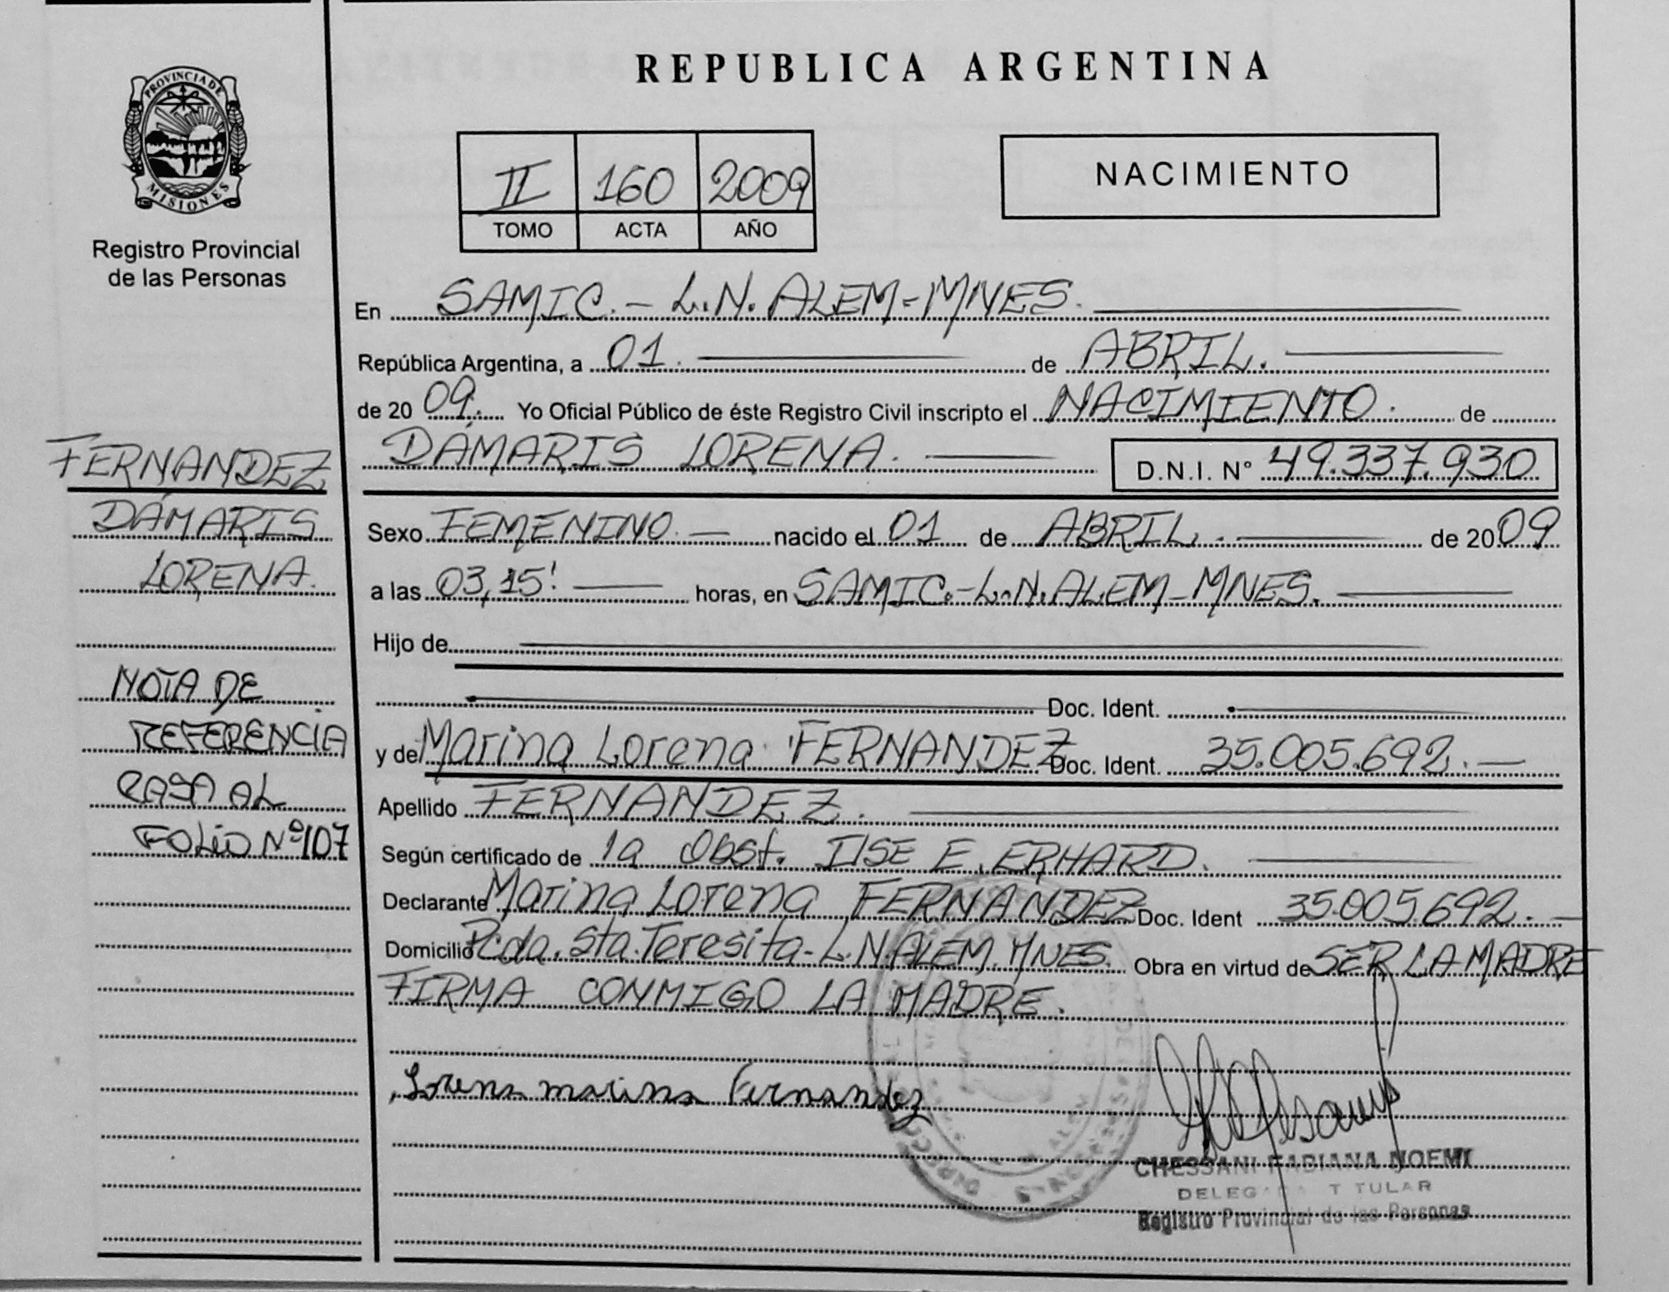 PROVINCIA DE
MISIONES
Registro Provincial
de las Personas
FERNANDEZ
DÁMARIS
LORENA.
NOTA DE
REFERENCIA
PASA AL
FOLIO Nº 107
REPUBLICA ARGENTINA
II 160 2009
TOMO ACTA AÑO
NACIMIENTO
En SAMIC.- L.N. ALEM-MNES.
República Argentina, a 01. de ABRIL.
de 2009. Yo Oficial Público de éste Registro Civil inscripto el NACIMIENTO. de
DÁMARIS LORENA. D.N.I. N° 49.337.930
Sexo FEMENINO. nacido el 01 de ABRIL. de 2009
a las 03,15! horas, en SAMIC.-L.N.ALEM-MNES.
Hijo de
Doc. Ident.
y de Marina Lorena FERNANDEZ Doc. Ident. 35.005.692.
Apellido FERNANDEZ.
Según certificado de la Obst. ILSE E. ERHARD.
Declarante Marina Lorena FERNANDEZ Doc. Ident 35.005.692.
Domicilio Pcda. Sta. Teresita-L.N.ALEM.MNES. Obra en virtud de SER LA MADRE
FIRMA CONMIGO LA MADRE.
Lorena marina Fernandez
CHESSANI FABIANA NOEMI
DELEGADA TITULAR
Registro Provincial de las Personas